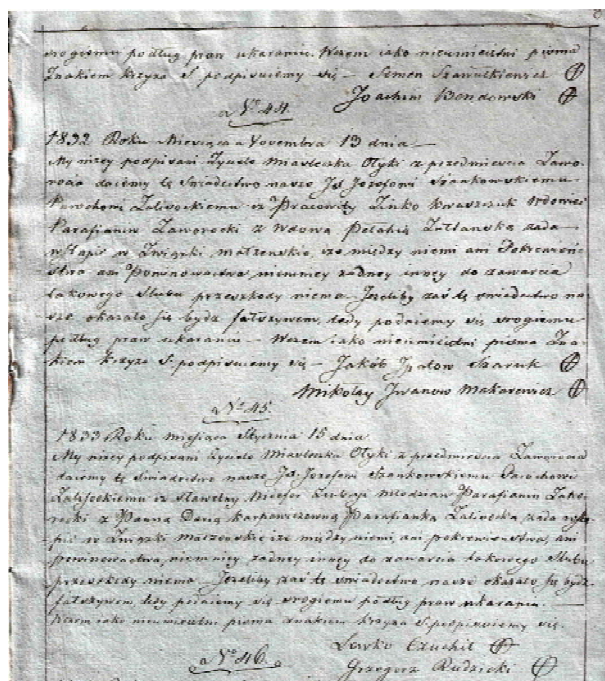 srogiemu podług praw ukaraniu. Wczem iako nieumieiętni pisma
Znakiem krzyża S. podpisuiemy się — Semen Szawulkiewicz
Joachim Bondowski
No. 44.
1832 Roku Miesiąca Novembra 13 dnia —
My niżey podpisani Życiele Miasteczka Ołyki z przedmieścia Zawo-
rocia daiemy tę Świadectwo nasze Jx Jozefowi Szankowskiemu
Parochowi Zalisockiemu iż Pracowity Zinko Kraszczuk Wdowiec
Parafianin Zaworocki z Wdową Pelahią żąda
wstąpić w Związki małżeńskie, że między niemi ani Pokrewień-
stwa ani Powinowactwa niemniey żadney inney do zawarcia
takowego Slubu przeszkody niema. Jeżeliby zaś tę swiadectwo na-
sze okazało się bydz fałszywem, tedy podaiemy się srogiemu
podług praw ukaraniu — Wczem iako nieumieiętni pisma Zna-
kiem krzyża S. podpisuiemy się — Jakób Szaruk
Mikołay Jwanow Makarewicz
No. 45.
1833 Roku miesiąca Stycznia 15 dnia.
My niżey podpisani Życiele Miasteczka Ołyki z przedmieścia Zaworocia
daiemy tę Swiadectwo nasze Jx Jozefowi Szankowskiemu Parochowi
Zalisockiemu iż Sławetny Nicefor młodzian Parafianin Zawo-
rocki z Panną Daryą Karpowiczewną Parafianką żąda wstą-
pić w Związki Małżeńskie iż między niemi, ani pokrewieństwa, ani
powinowactwa, niemniey żadney inney do zawarcia takowego Slubu
przeszkody niema. Jeżeliby zaś tę swiadectwo nasze okazało się bydz
fałszywem tedy podaiemy się srogiemu podług praw ukaraniu.
Wczem iako nieumieiętni pisma znakiem krzyża S. podpisuiemy się.
Lewko Czuchil
No. 46.
Grzegorz Rudzicki